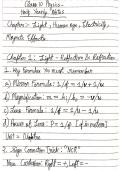 Class 10 Physics -
Half Yearly Notes
Chapter :- Light, Human eye, Electricity,
Magnetic Effects
Chapter 1 : Light - Reflection & Refraction
1. Key Formulas You must Remember
a) Mirror Formula: 1/f = 1/v + 1/u
b) Magnification: m = h₂/h₁ = -v/u
c) Lens Formula: 1/f = 1/v - 1/u
d) Power of Lens: P = 1/f (f in meters)
Unit = Dioptre
2. Sign Convention Trick: "NCR"
New Cartesian Right = +, Left = -